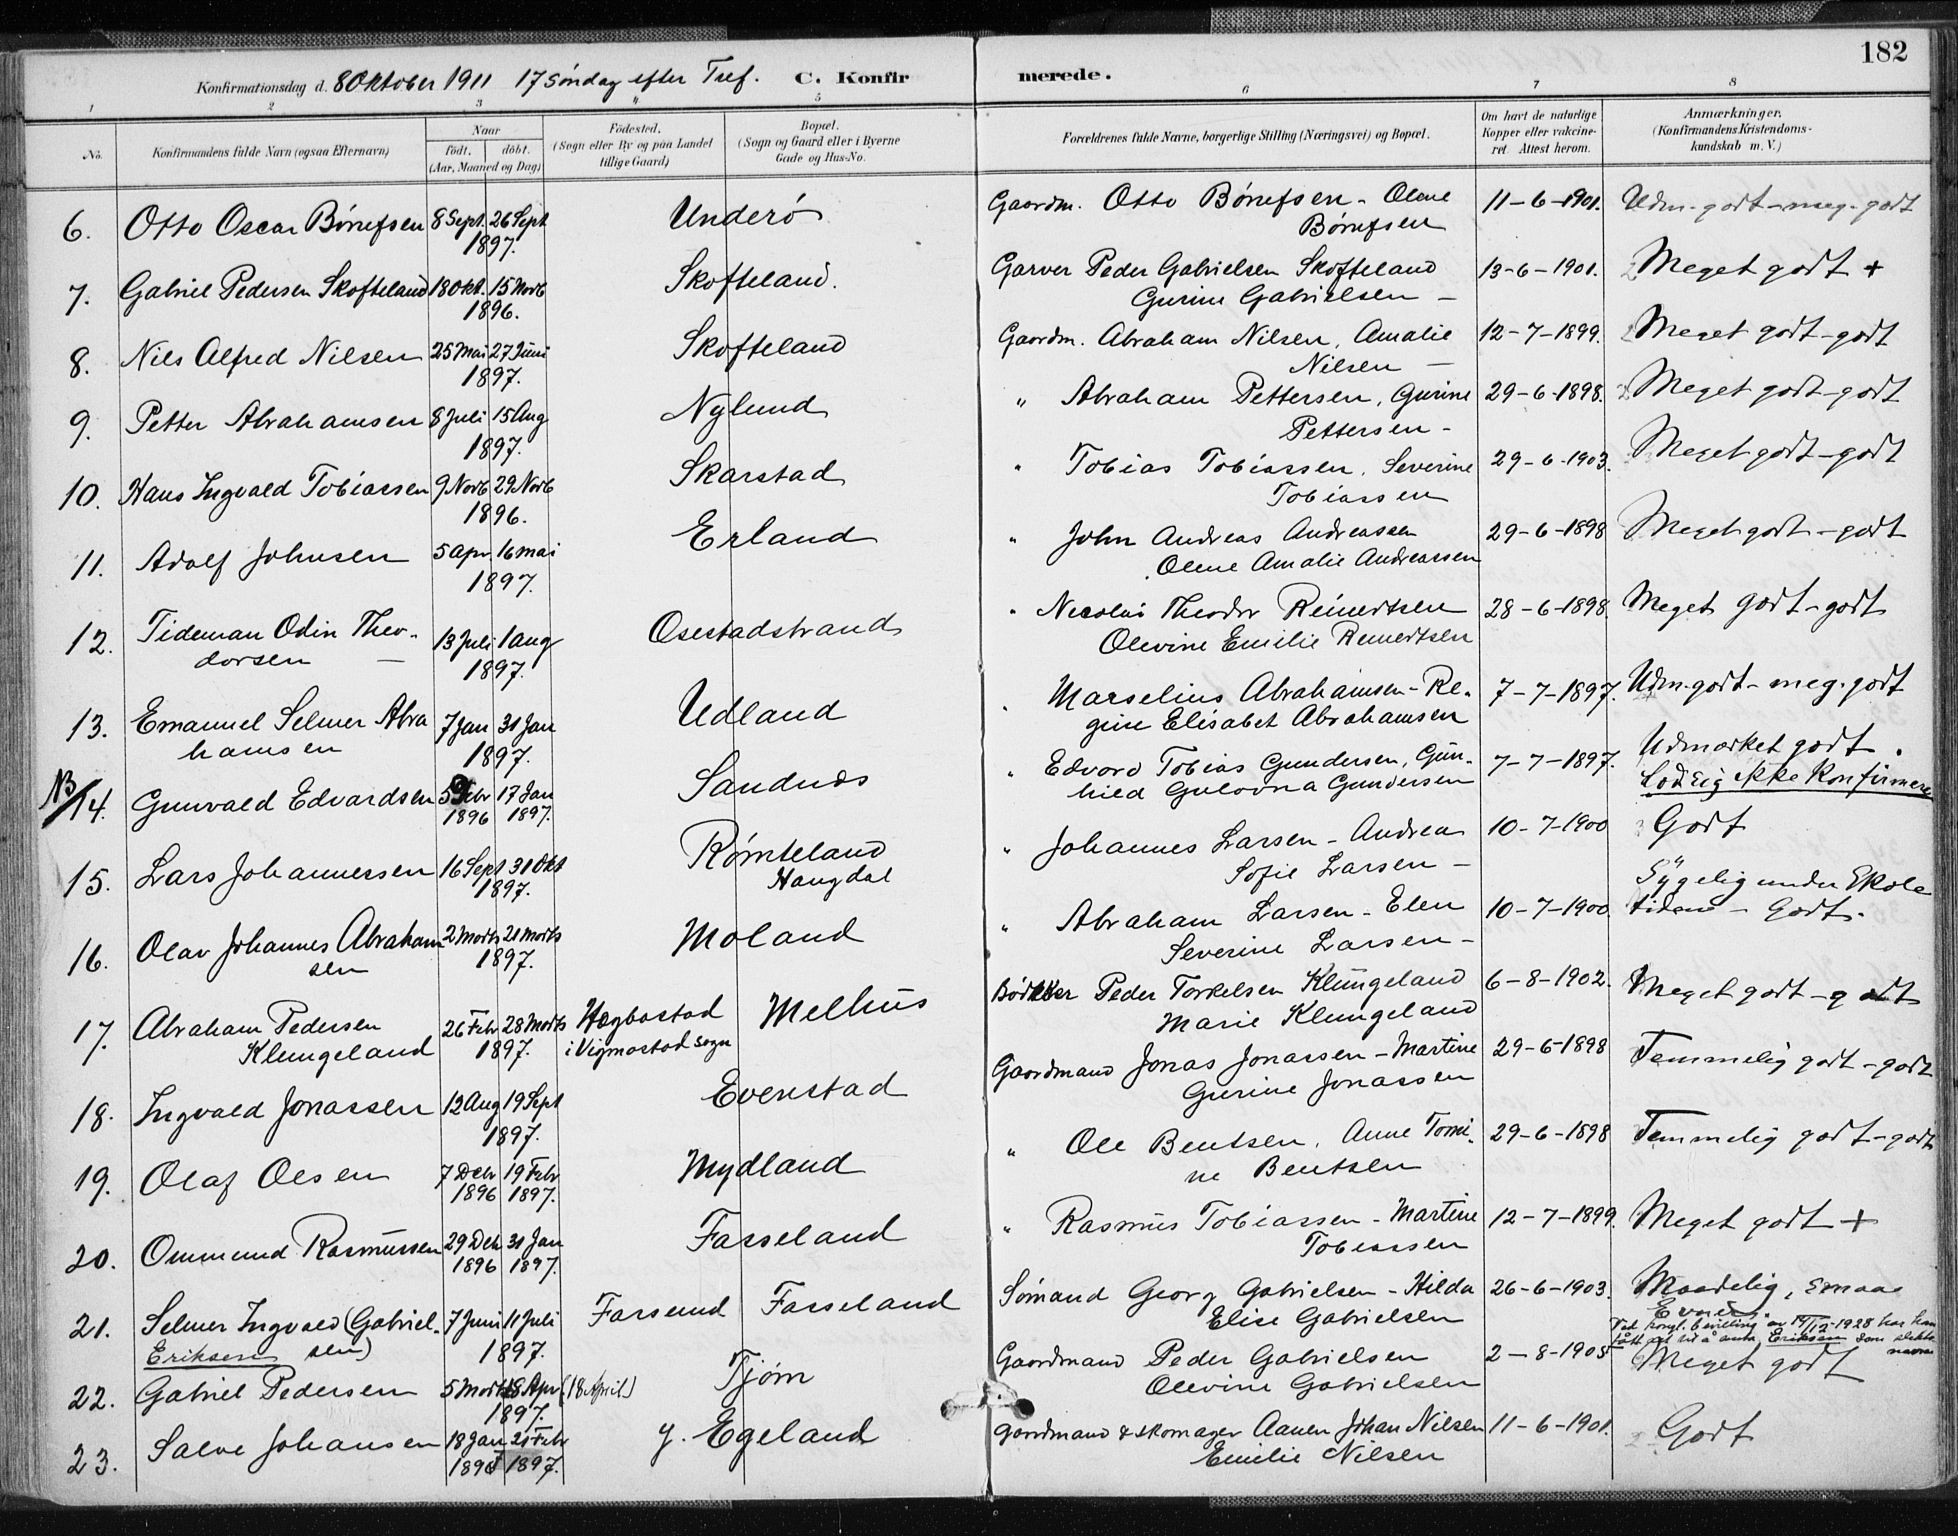 182
Konfirmationsdag d. 8 Oktober 1911 17 Søndag efter Tref. C. Konfirmerede.
1 2 3 4 5 6 7 8
No.
Konfirmandens fulde Navn (ogsaa Efternavn)
Naar
født. døbt.
(Aar, Maaned og Dag)
Fødested.
(Sogn eller By og paa Landet
tillige Gaard)
Bopæl.
(Sogn og Gaard eller i Byerne
Gade og Hus-No.
Forældrenes fulde Navne, borgerlige Stilling (Næringsvei) og Bopæl.
Om havt de naturlige
Kopper eller vakcine-
ret. Attest herom.
Anmærkninger.
(Konfirmandens Kristendoms-
kundskab m. V.)
6. Otto Oscar Børufsen 8 Sept. 26 Sept 1897. Underö Gaardm. Otto Børufsen - Olene 11-6-1901. Udm. godt - meg. godt
Børufsen
7. Gabriel Pedersen Skofteland 18 Okt. 15 Novb 1896. Skofteland. Garver Peder Gabrielsen Skofteland 13-6-1901. Meget godt +
Gurine Gabrielsen -
8. Nils Alfred Nilsen 25 Mai 27 Juni 1897. Skofteland Gaardm. Abraham Nilsen, Amalie 12-7-1899. Meget godt - godt
Nilsen -
9. Petter Abrahamsen 8 Juli 15 Aug 1897. Nylund " Abraham Pettersen, Gurine 29-6-1898. Meget godt - godt
Pettersen -
10. Hans Ingvald Tobiassen 9 Novb 29 Novb 1896. Skarstad " Tobias Tobiassen, Severine 29-6-1903. Meget godt - godt
Tobiassen
11. Adolf Johnsen 5 Apr 16 mai 1897. Erland " John Andreas Andreassen 29-6-1898 Meget godt - godt
Olene Amalie Andreassen
12. Tideman Odin Theo- 13 Juli 1 Aug 1897. Osestadstrand " Necolai Theodor Reinertsen 28-6-1898. Meget godt - godt
dorsen - Olevine Emilie Reinertsen
13. Emanuel Selmer Abra 7 Jan 31 Jan 1897. Udland " Marselius Abrahamsen - Re- 7-7-1897. Udm. godt - meg. godt
hamsen gine Elisabet Abrahamsen
NB 14. Gunvald Edvardsen 5 Febr 1896 17 Jan 1897. Sandnæs " Edvard Tobias Gundersen, Gun- 7-7-1897. Udmærket godt.
hild Gulovna Gundersen Lod sig ikke konfirmere
15. Lars Johannessen 16 Sept 31 Okt 1897. Rømteland " Johannes Larsen - Andrea 10-7-1900 Godt
Haugdal Sofie Larsen -
16. Olav Johannes Abraham 2 Marts 21 Marts 1897. Moland " Abraham Larsen - Elen 10-7-1900. Sygelig under Skole
sen Severine Larsen - tiden - Godt.
17. Abraham Pedersen 26 Febr 28 Marts 1897. Hægbostad Melhus Bødkker Peder Torkelsen Klungeland 6-8-1902. Meget godt - godt
Klungeland i Vigmostad sogn Marie Klungeland
18. Ingvald Jonassen 12 Aug 19 Sept 1897. Evenstad Gaardmand Jonas Jonassen - Martine 29-6-1898 Temmelig godt - godt
Gurine Jonassen
19. Olaf Olsen 7 Debr 1896 19 Febr 1897. Mydland " Ole Bentsen, Anne Tomi- 29-6-1898 Temmelig godt - godt
ne Bentsen
20. Ommund Rasmussen 29 Deb 1896 31 Jan 1897. Fasseland " Rasmus Tobiassen - Martine 12-7-1899. Meget godt +
Tobiassen
21. Selmer Ingvald (Gabriel- 7 Juni 11 Juli 1897. Farsund Fasseland Sømand Georg Gabrielsen - Hilda 26-6-1903. Maadelig, smaa
Eriksen sen) Elise Gabrielsen Evner.
Ved kongl. bevilling av 19/12-1928 har han
fått ret til å anta Eriksen som slekts
navn
22. Gabriel Pedersen 5 Marts 18 Apr (18 April) 1897. Tjøm Gaardmand Peder Gabrielsen 2-8-1905 Meget godt
Olevine Gabrielsen
23. Salve Johansen 18 Jan 21 Febr 1897. y. Egeland Gaardmand & skomager Aanen Johan Nilsen 11-6-1901. Godt
Emilie Nilsen